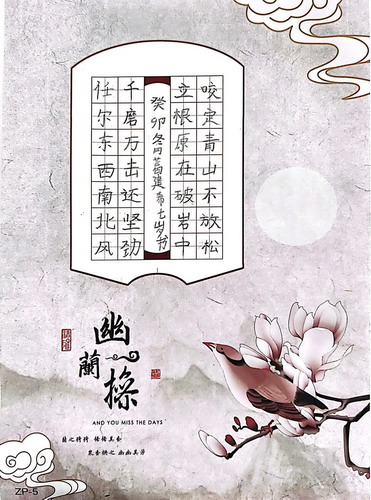 咬定青山不放松
立根原在破岩中
癸卯冬月建七岁书
千磨万击还坚劲
任尔东西南北风
幽蘭操
AND YOU MISS THE DAYS
蘭之猗猗 揚揚其香
眾香拱之 幽幽其芳
ZP-5